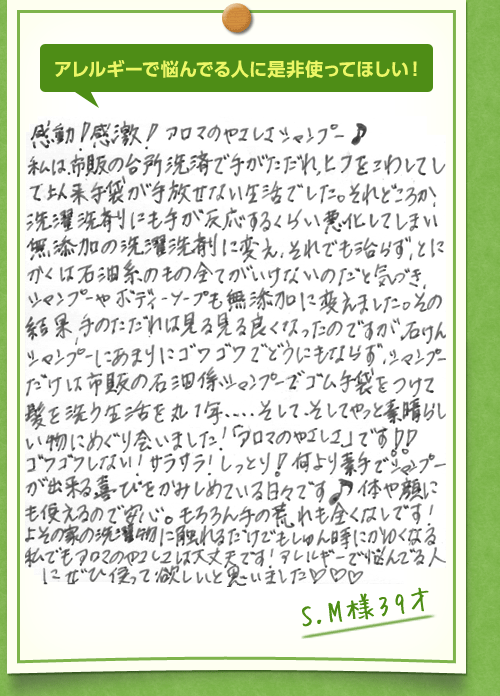 アレルギーで悩んでる人に是非使ってほしい！
感動！感激！アロマのやさしさシャンプー♪
私は、市販の台所洗済で手がただれ、ヒフをこわしてし
て以来手袋が手放せない生活でした。それどころか、
洗濯洗剤にも手が反応するくらい悪化してしまい
無添加の洗濯洗剤に変え、それでも治らず、とに
かくは石油系のもの全てがいけないのだと気づき、
シャンプーやボディーソープも無添加に変えました。その
結果、手のただれは見る見る良くなったのですが、石けん
シャンプーにあまりにゴワゴワでどうにもならず、シャンプー
だけは市販の石油係シャンプーでゴム手袋をつけて
髪を洗う生活を丸1年‥‥‥そして、そしてやっと素晴らし
い物にめぐり会いました！「アロマのやさしさ」です！！
ゴワゴワしない！サラサラ！しっとり！何より素手でシャンプー
が出来る喜びをかみしめている日々です♪体や顔に
も使えるので安心。もちろん手の荒れも全くなしです！
よその家の洗濯物に触れるだけでもしゅん時にかゆくなる
私でもアロマのやさしさは大丈夫です！アレルギーで悩んでる人
にぜひ使って欲しいと思いました♡♡♡
S.M様39才